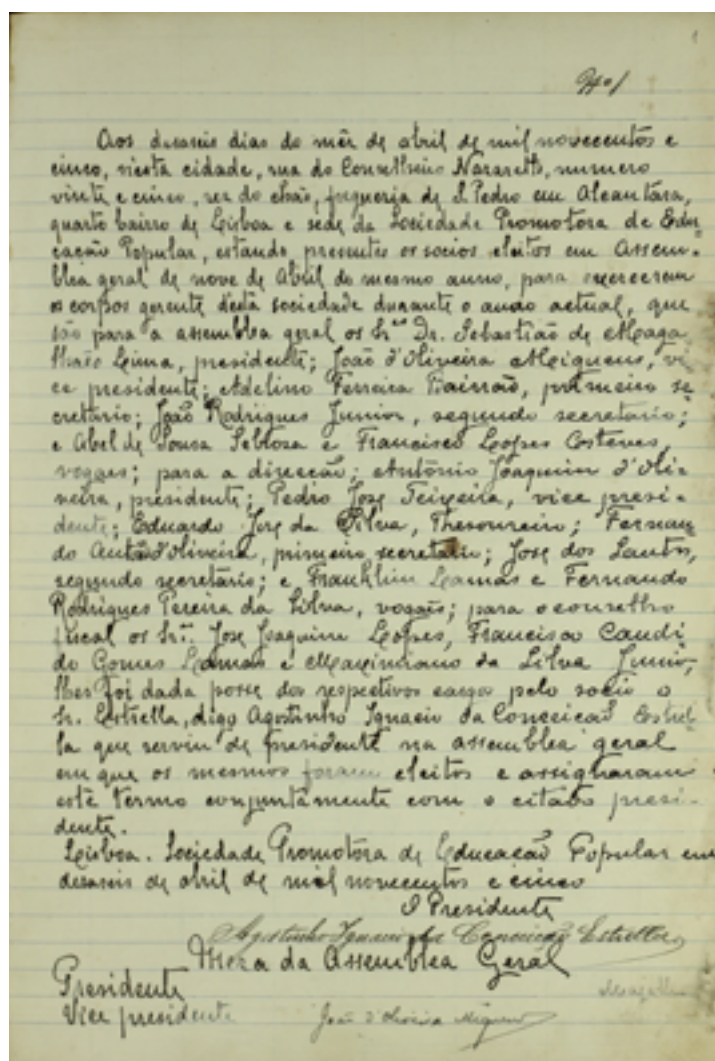 1
Aos desaseis dias do mêz de abril de mil novecentos e
cinco, nesta cidade, rua do Conselheiro Nazareth, numero
vinte e cinco, rez do chão, freguezia de S. Pedro em Alcantára,
quarto bairro de Lisboa e séde da Sociedade Promotora de Edu
cação Popular, estando presentes os socios eleitos em Assem-
bléa geral de nove de Abril do mesmo anno, para exercerem
os corpos gerente desta sociedade durante o anno actual, que
são para a assembléa geral os Srs. Dr. Sebastião de Maga
lhães Lima, presidente; João d'Oliveira Migueus, vi
ce presidente; Adelino Ferreira, primeiro se
cretário; João Rodrigues Junior, segundo secretario;
e Abel de Sousa Sebloza e Francisco Lopes Esteves,
vogaes; para a direcção; António Joaquim d'Oli-
veira, presidente; Pedro José Teixeira, vice presi-
dente; Eduardo José da Silva, Thesoureiro; Fernan
do Antão d'Oliveira, primeiro secretario; José dos Santos,
segundo secretário; e Franklim Lamas e Fernando
Rodrigues Pereira da Silva, vogaes; para o conselho
fiscal os Srs. José Joaquim Lopes, Francisco Candi
do Gomes Lamas e Maximiano da Silva Junior,
lhes foi dada posse dos respetivos cargo pelo socio o
Sr. Estrella, digo Agostinho Ignacio da Conceição Estrel
la que serviu de presidente na assemblea geral
em que os mesmos foram eleitos e assignaram
este termo conjuntamente com o citado presi-
dente.
Lisboa. Sociedade Promotora de Educação Popular em
desaseis de abril de mil novecentos e cinco
O Presidente
Agostinho Ignacio da Conceição Estrella
Meza da Assemblea Geral
Presidente
Vice presidente João d'Oliveira Migueus